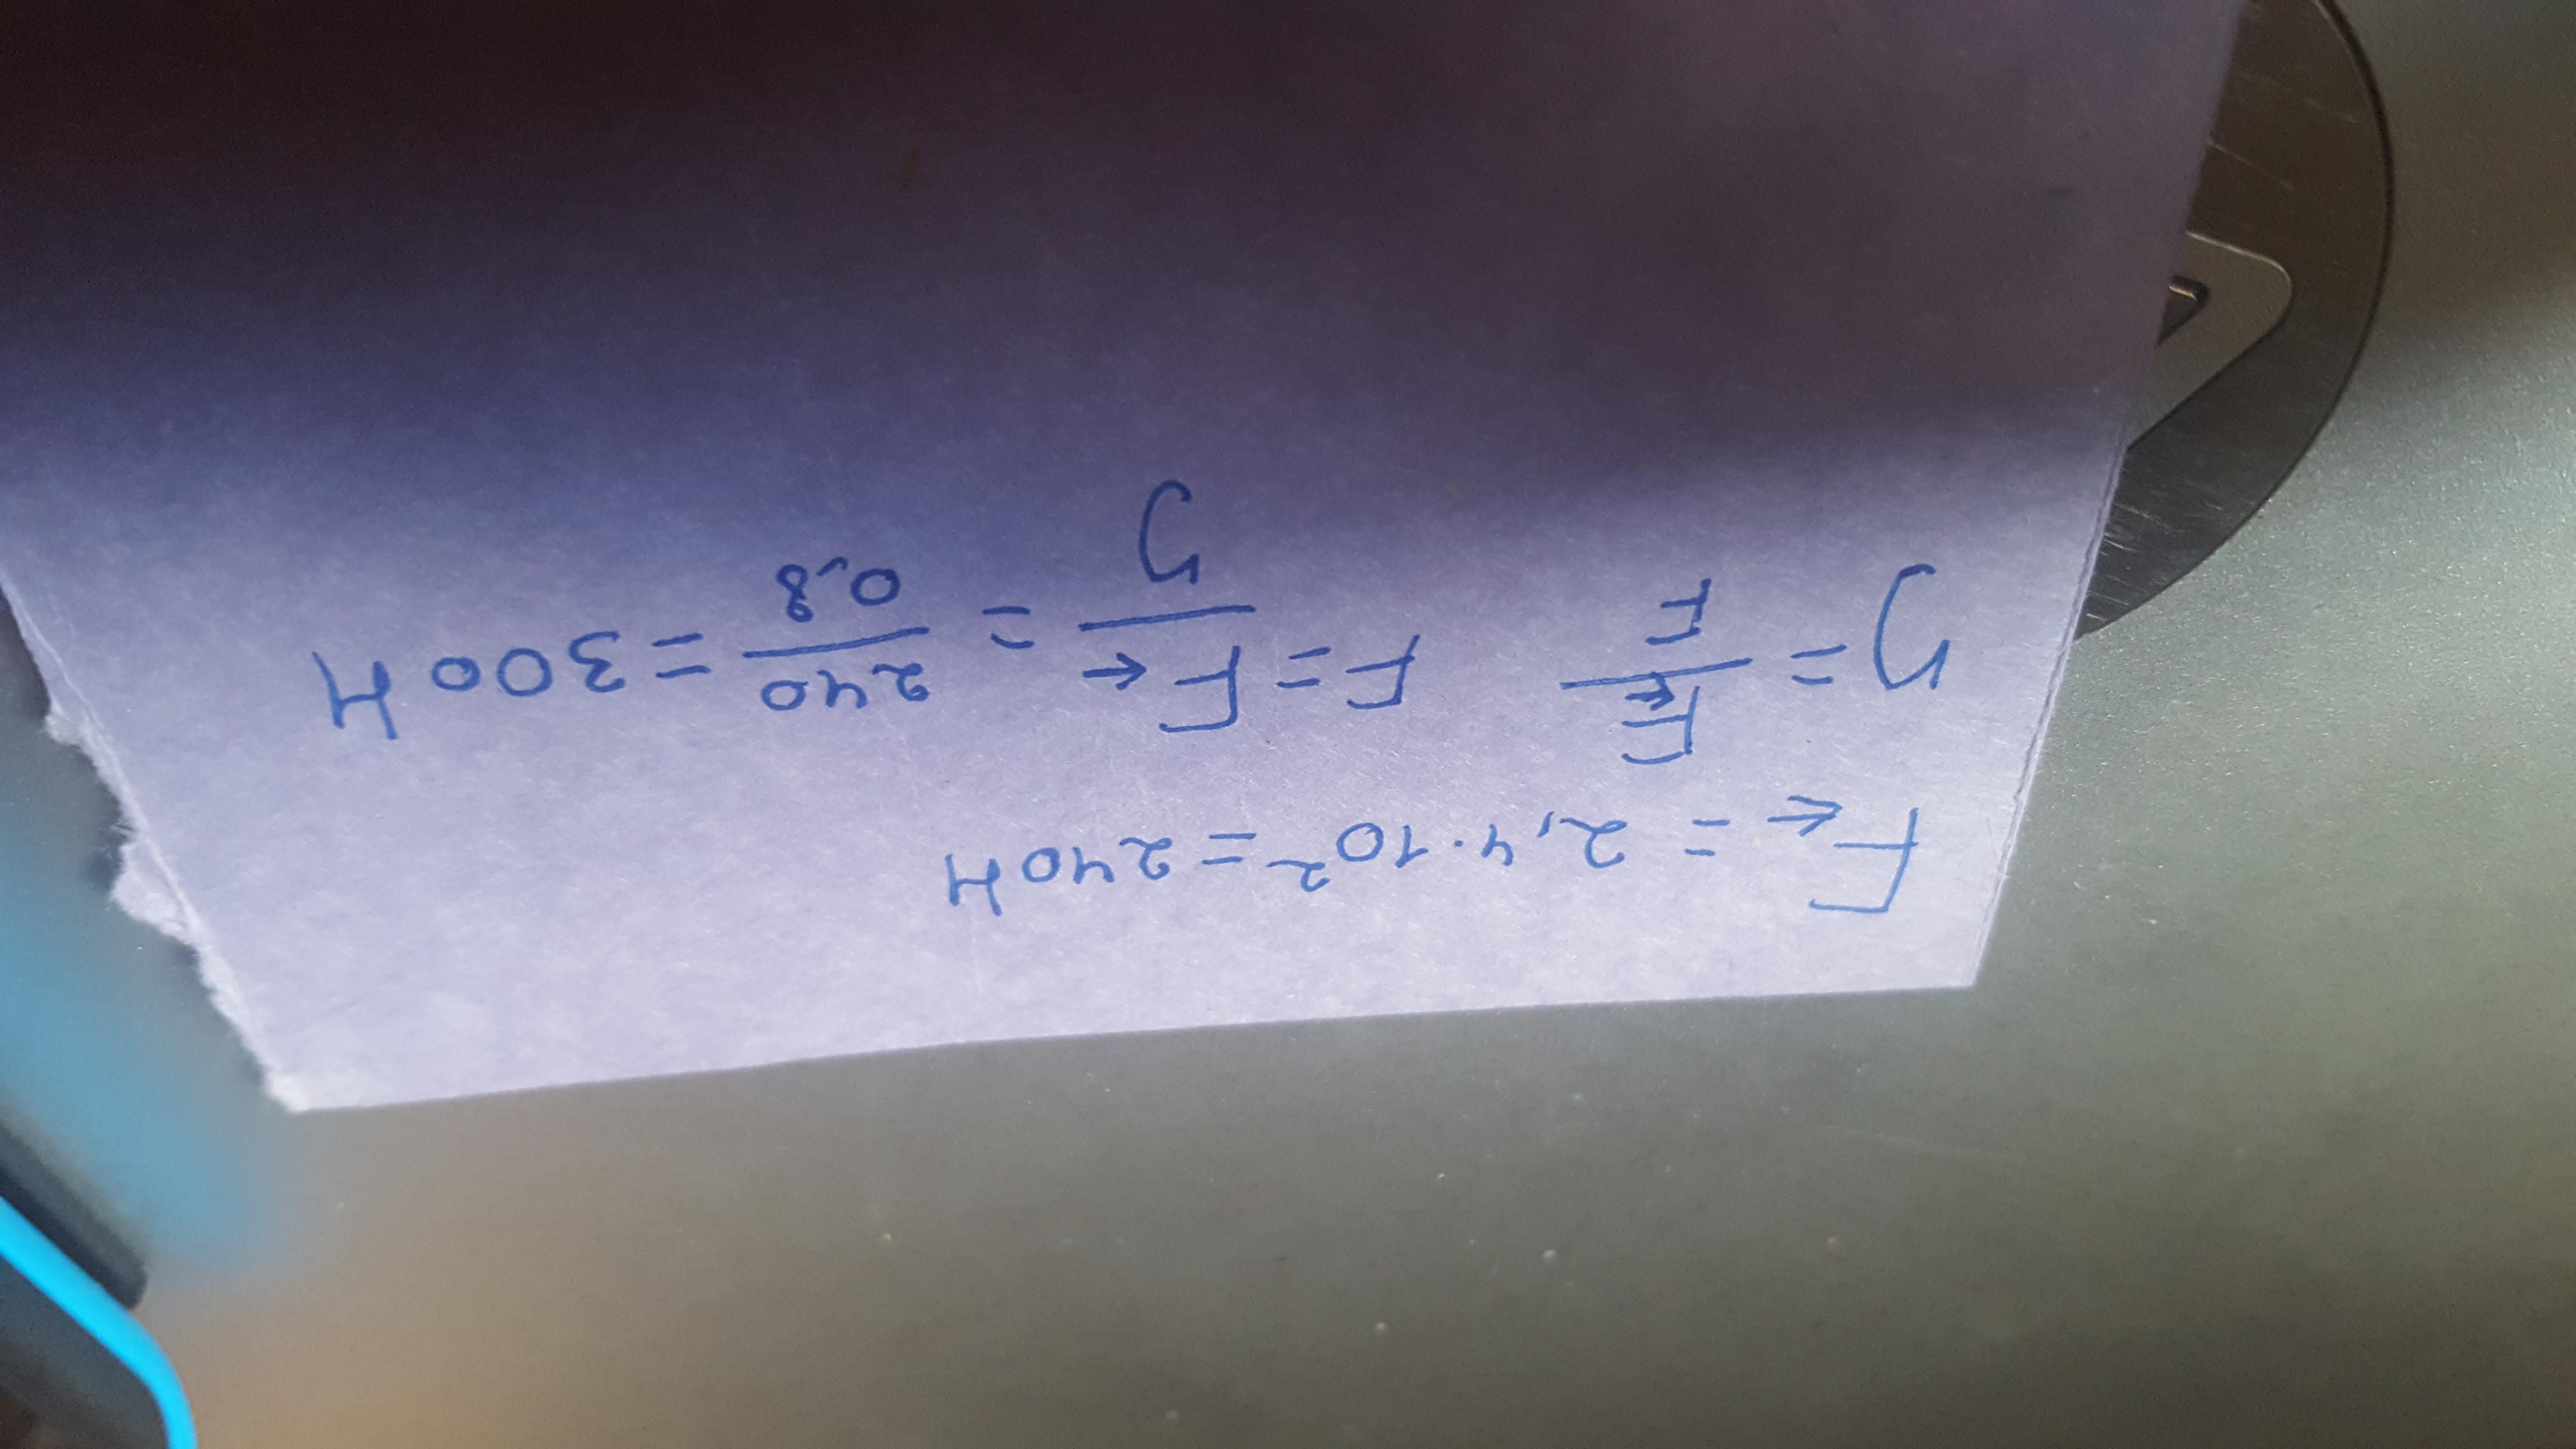 F← = 2,4·10² = 240Н
η = F←/F F = F←/η = 240/0,8 = 300Н